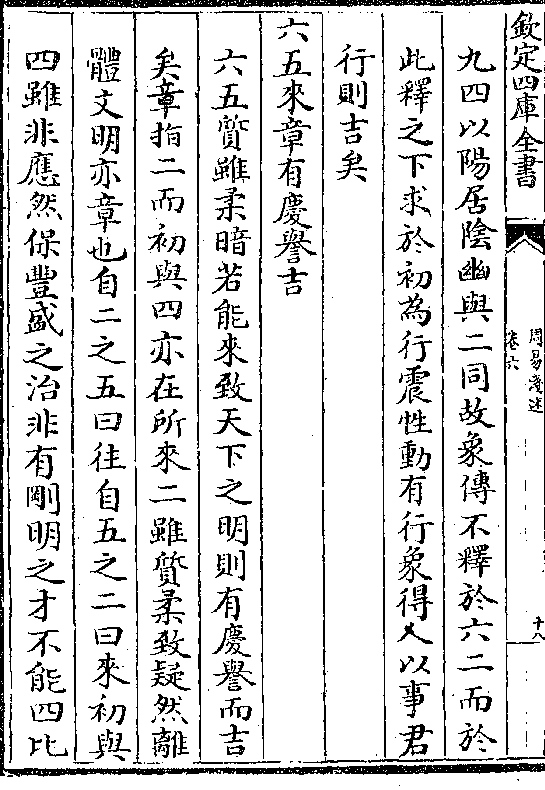 欽定四庫全書
周易淺述
卷六
十八
九四以陽居陰幽與二同故象傳不釋於六二而於
此釋之下求於初為行震性動有行象得人以事君
行則吉矣
六五來章有慶譽吉
六五質雖柔暗若能來致天下之明則有慶譽而吉
矣章指二而初與四亦在所來二雖質柔致疑然離
體文明亦章也自二之五曰往自五之二曰來初與
四雖非應然保豐盛之治非有剛明之才不能四比